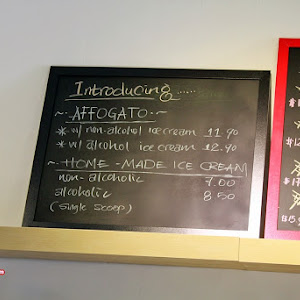 Introducing ......
~ AFFOGATO ~
* w/ non-alcohol ice cream 11.90
* w/ alcohol ice cream 12.90
~ HOME-MADE ICE CREAM
non-alcoholic 7.00
alcoholic 8.50
(single scoop)